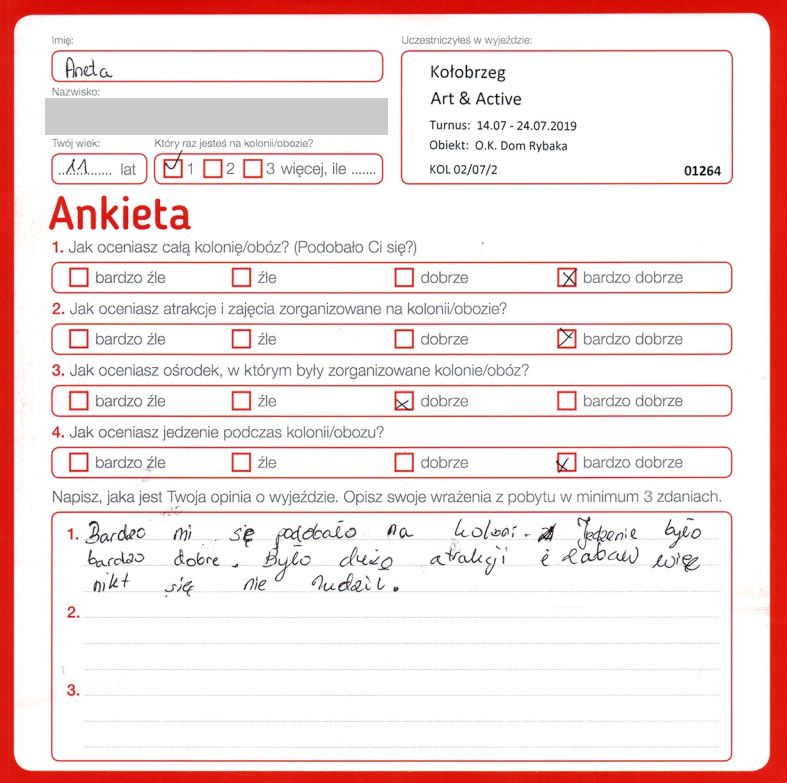 Imię:
Aneta
Nazwisko:
Twój wiek:
11 lat
Który raz jesteś na kolonii/obozie?
1 2 3 więcej, ile .......
Uczestniczyłeś w wyjeździe:
Kołobrzeg
Art & Active
Turnus: 14.07 - 24.07.2019
Obiekt: O.K. Dom Rybaka
KOL 02/07/2 01264
Ankieta
1. Jak oceniasz całą kolonię/obóz? (Podobało Ci się?)
bardzo źle źle dobrze bardzo dobrze
2. Jak oceniasz atrakcje i zajęcia zorganizowane na kolonii/obozie?
bardzo źle źle dobrze bardzo dobrze
3. Jak oceniasz ośrodek, w którym były zorganizowane kolonie/obóz?
bardzo źle źle dobrze bardzo dobrze
4. Jak oceniasz jedzenie podczas kolonii/obozu?
bardzo źle źle dobrze bardzo dobrze
Napisz, jaka jest Twoja opinia o wyjeździe. Opisz swoje wrażenia z pobytu w minimum 3 zdaniach.
1. Bardzo mi się podobało na koloni. Jedzenie było
bardzo dobre. Było dużo atrakcji i zabaw więc
nikt się nie nudził.
2.
3.